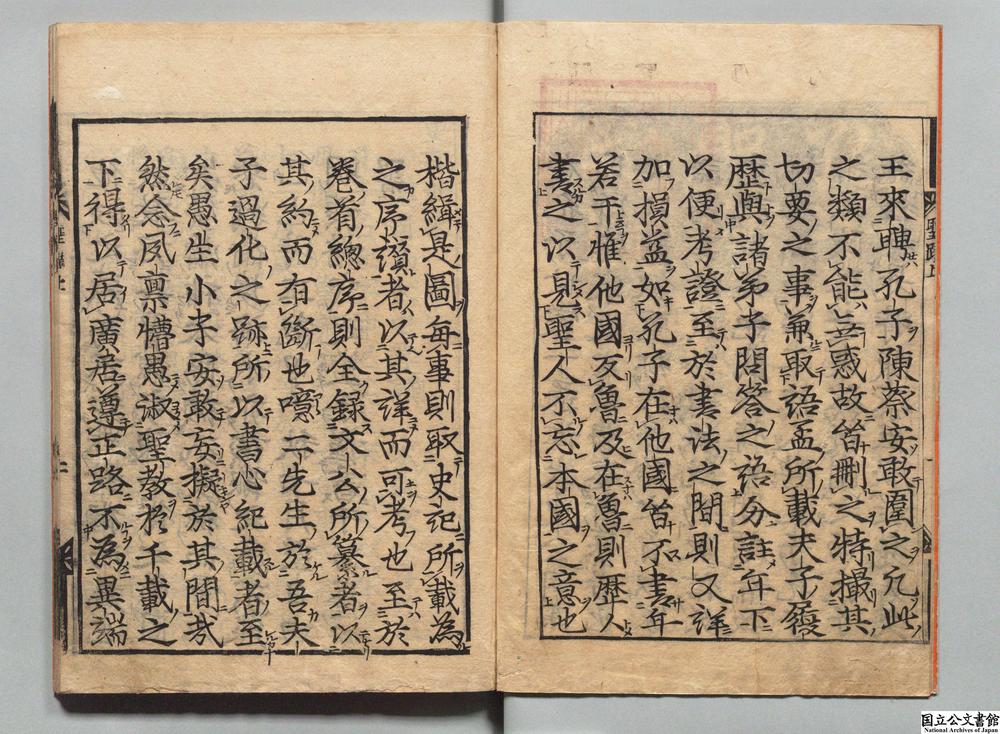 王來聘孔子陳蔡安敢圍之凡此
之類不能無惑故皆刪之特撮其
切要之事兼取語孟所載夫子履
歴與諸弟子問答之語分註年下
以便考證至於書法之間則又詳
加損益如孔子在他國皆不書年
若干惟他國反魯及在魯則歴人
書之以見聖人不忘本國之意也
楷緝是圖每事則取史記所載為
之序讀者以其詳而可考也至於
卷首總序則全録文公所纂者以
其約而有斷也噫二先生於吾夫
子過化之跡所以書心紀載者至
矣愚生小子安敢妄擬於其間哉
然念夙禀懵愚淑聖教於千載之
下得以居廣居遵正路不為異端
聖蹟上
国立公文書館
National Archives of Japan